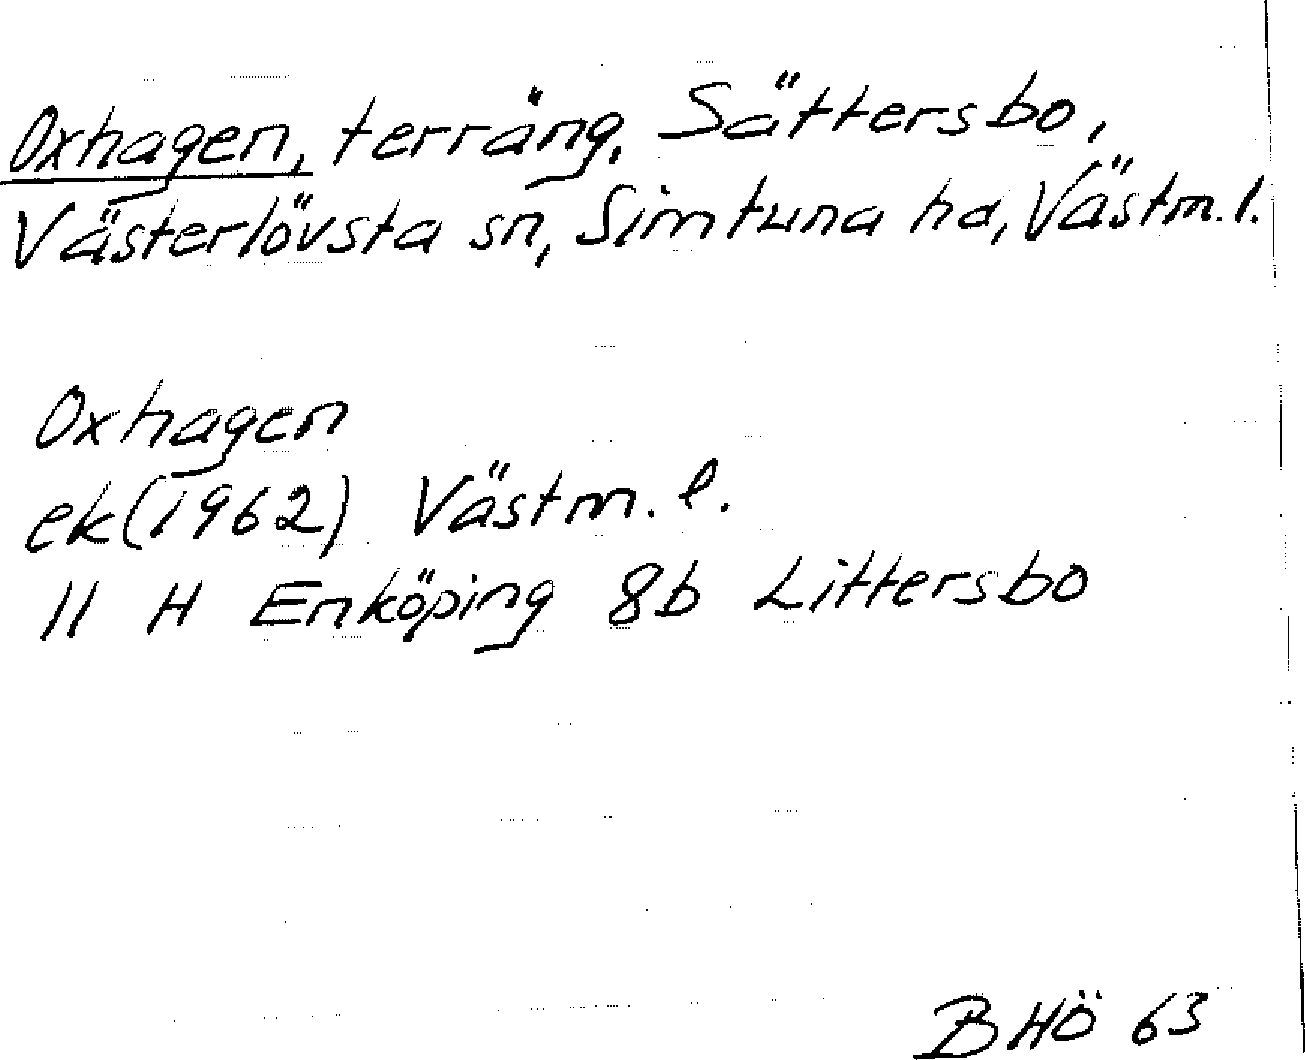 Oxhagen, terräng, Sättersbo,
Västerlövsta sn, Simtuna hd, Västm. l.
Oxhagen
ek (1962) Västm. l.
11 H Enköping 8b Littersbo
BHÖ 63